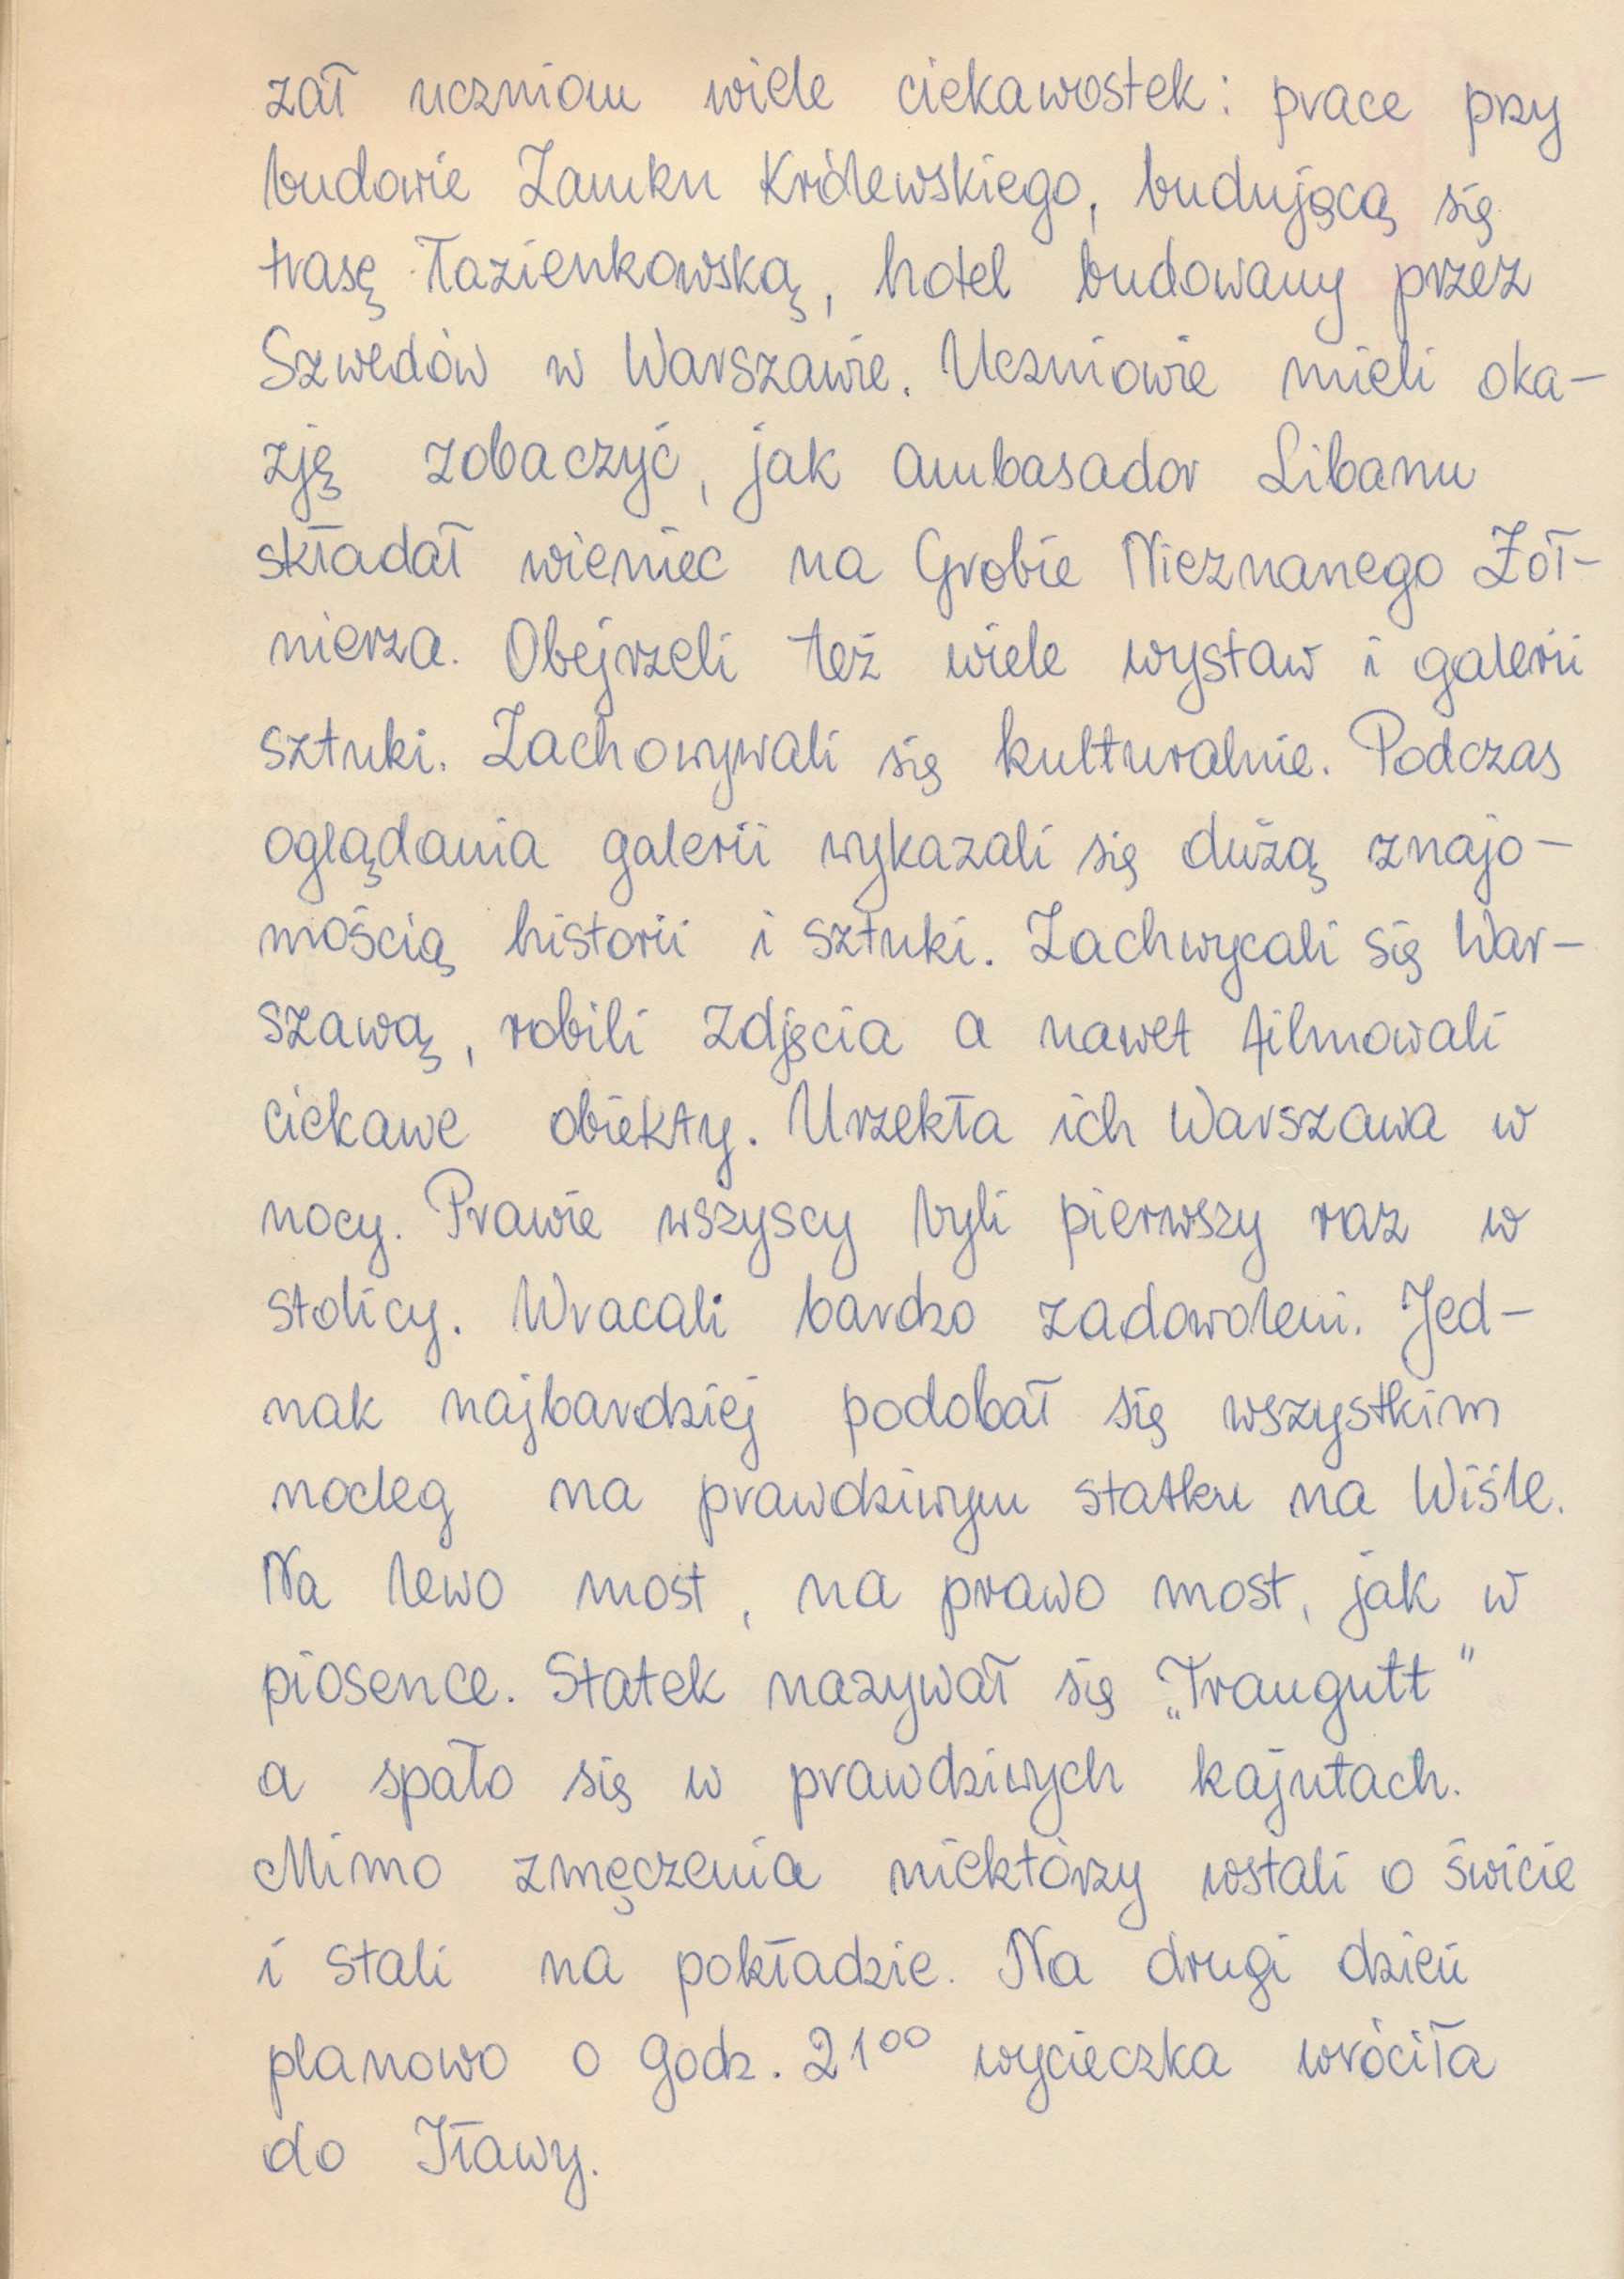 zał uczniom wiele ciekawostek: prace przy
budowie Zamku Królewskiego, budującą się
trasę Łazienkowską, hotel budowany przez
Szwedów w Warszawie. Uczniowie mieli oka-
zję zobaczyć, jak ambasador Libanu
składał wieniec na Grobie Nieznanego Żoł-
nierza. Obejrzeli też wiele wystaw i galerii
sztuki. Zachowywali się kulturalnie. Podczas
oglądania galerii wykazali się dużą znajo-
mością historii i sztuki. Zachwycali się War-
szawą, robili zdjęcia a nawet filmowali
ciekawe obiekty. Urzekła ich Warszawa w
nocy. Prawie wszyscy byli pierwszy raz w
stolicy. Wracali bardzo zadowoleni. Jed-
nak najbardziej podobał się wszystkim
nocleg na prawdziwym statku na Wiśle.
Na lewo most, na prawo most, jak w
piosence. Statek nazywał się „Traugutt"
a spało się w prawdziwych kajutach.
Mimo zmęczenia niektórzy wstali o świcie
i stali na pokładzie. Na drugi dzień
planowo o godz. 21⁰⁰ wycieczka wróciła
do Iławy.